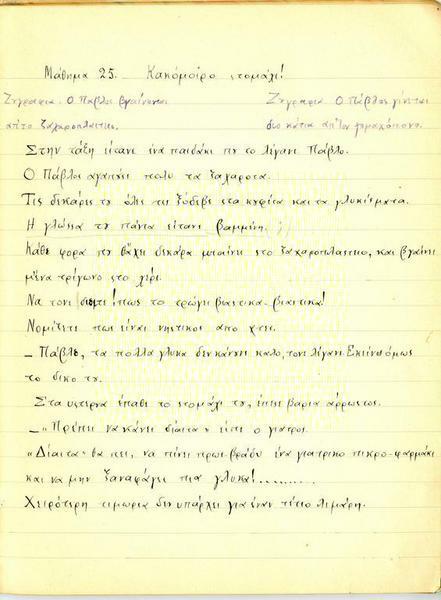 Μάθημα 25. Κακόμοιρο στομάχι!
Ζγραφια. Ο Πάβλος βγαίνοντας
απ'το ζαχαροπλαστιο.
Ζγραφια Ο Πάβλος γίνεται
δυο κάτια απ'τον
Στην τάξη είτανε ένα παιδάκι πυ το λέγανε Πάβλο.
Ο Πάβλος αγαπύσε πολυ τα ζαχαροτα.
Τις δεκάρες τυ όλες τις ξόδεβε στα κυφέτα και τα γλυκίσματα.
Η γλώσσα τυ πάντα είτανε βαμμένη
Κάθε φορα πυ θάχει δεκάρα μπαίνει στο ζαχαροπλαστιο, και βγαίνει
μ'ένα τρίγωνο στο χέρι.
Να τονε διείτε! πως το τρώγει βιαστικα-βιαστικα!
Νομίζετε πως είναι νηστικος απο χτες.
– Πάβλο, τα πολλα γλυκα δεν κάνυνε καλο, τονε λέγανε. Εκείνος όμως
το δικο τυ.
Στα υστερνα έπαθε το στομάχι τυ, έπεσε βαρια άρρωστος.
– „Πρέπει να κάνει δίαιτα" είπε ο γιατρος.
„Δίαιτα" θα πει, να πίνει πρωι-βράδυ ένα γιατρικο πικρο-φαρμάκι
και να μην ξαναφάγει πια γλυκα!........
Χειρότερη τιμωρια δεν υπάρχει για έναν τέτιο λιμάρη.